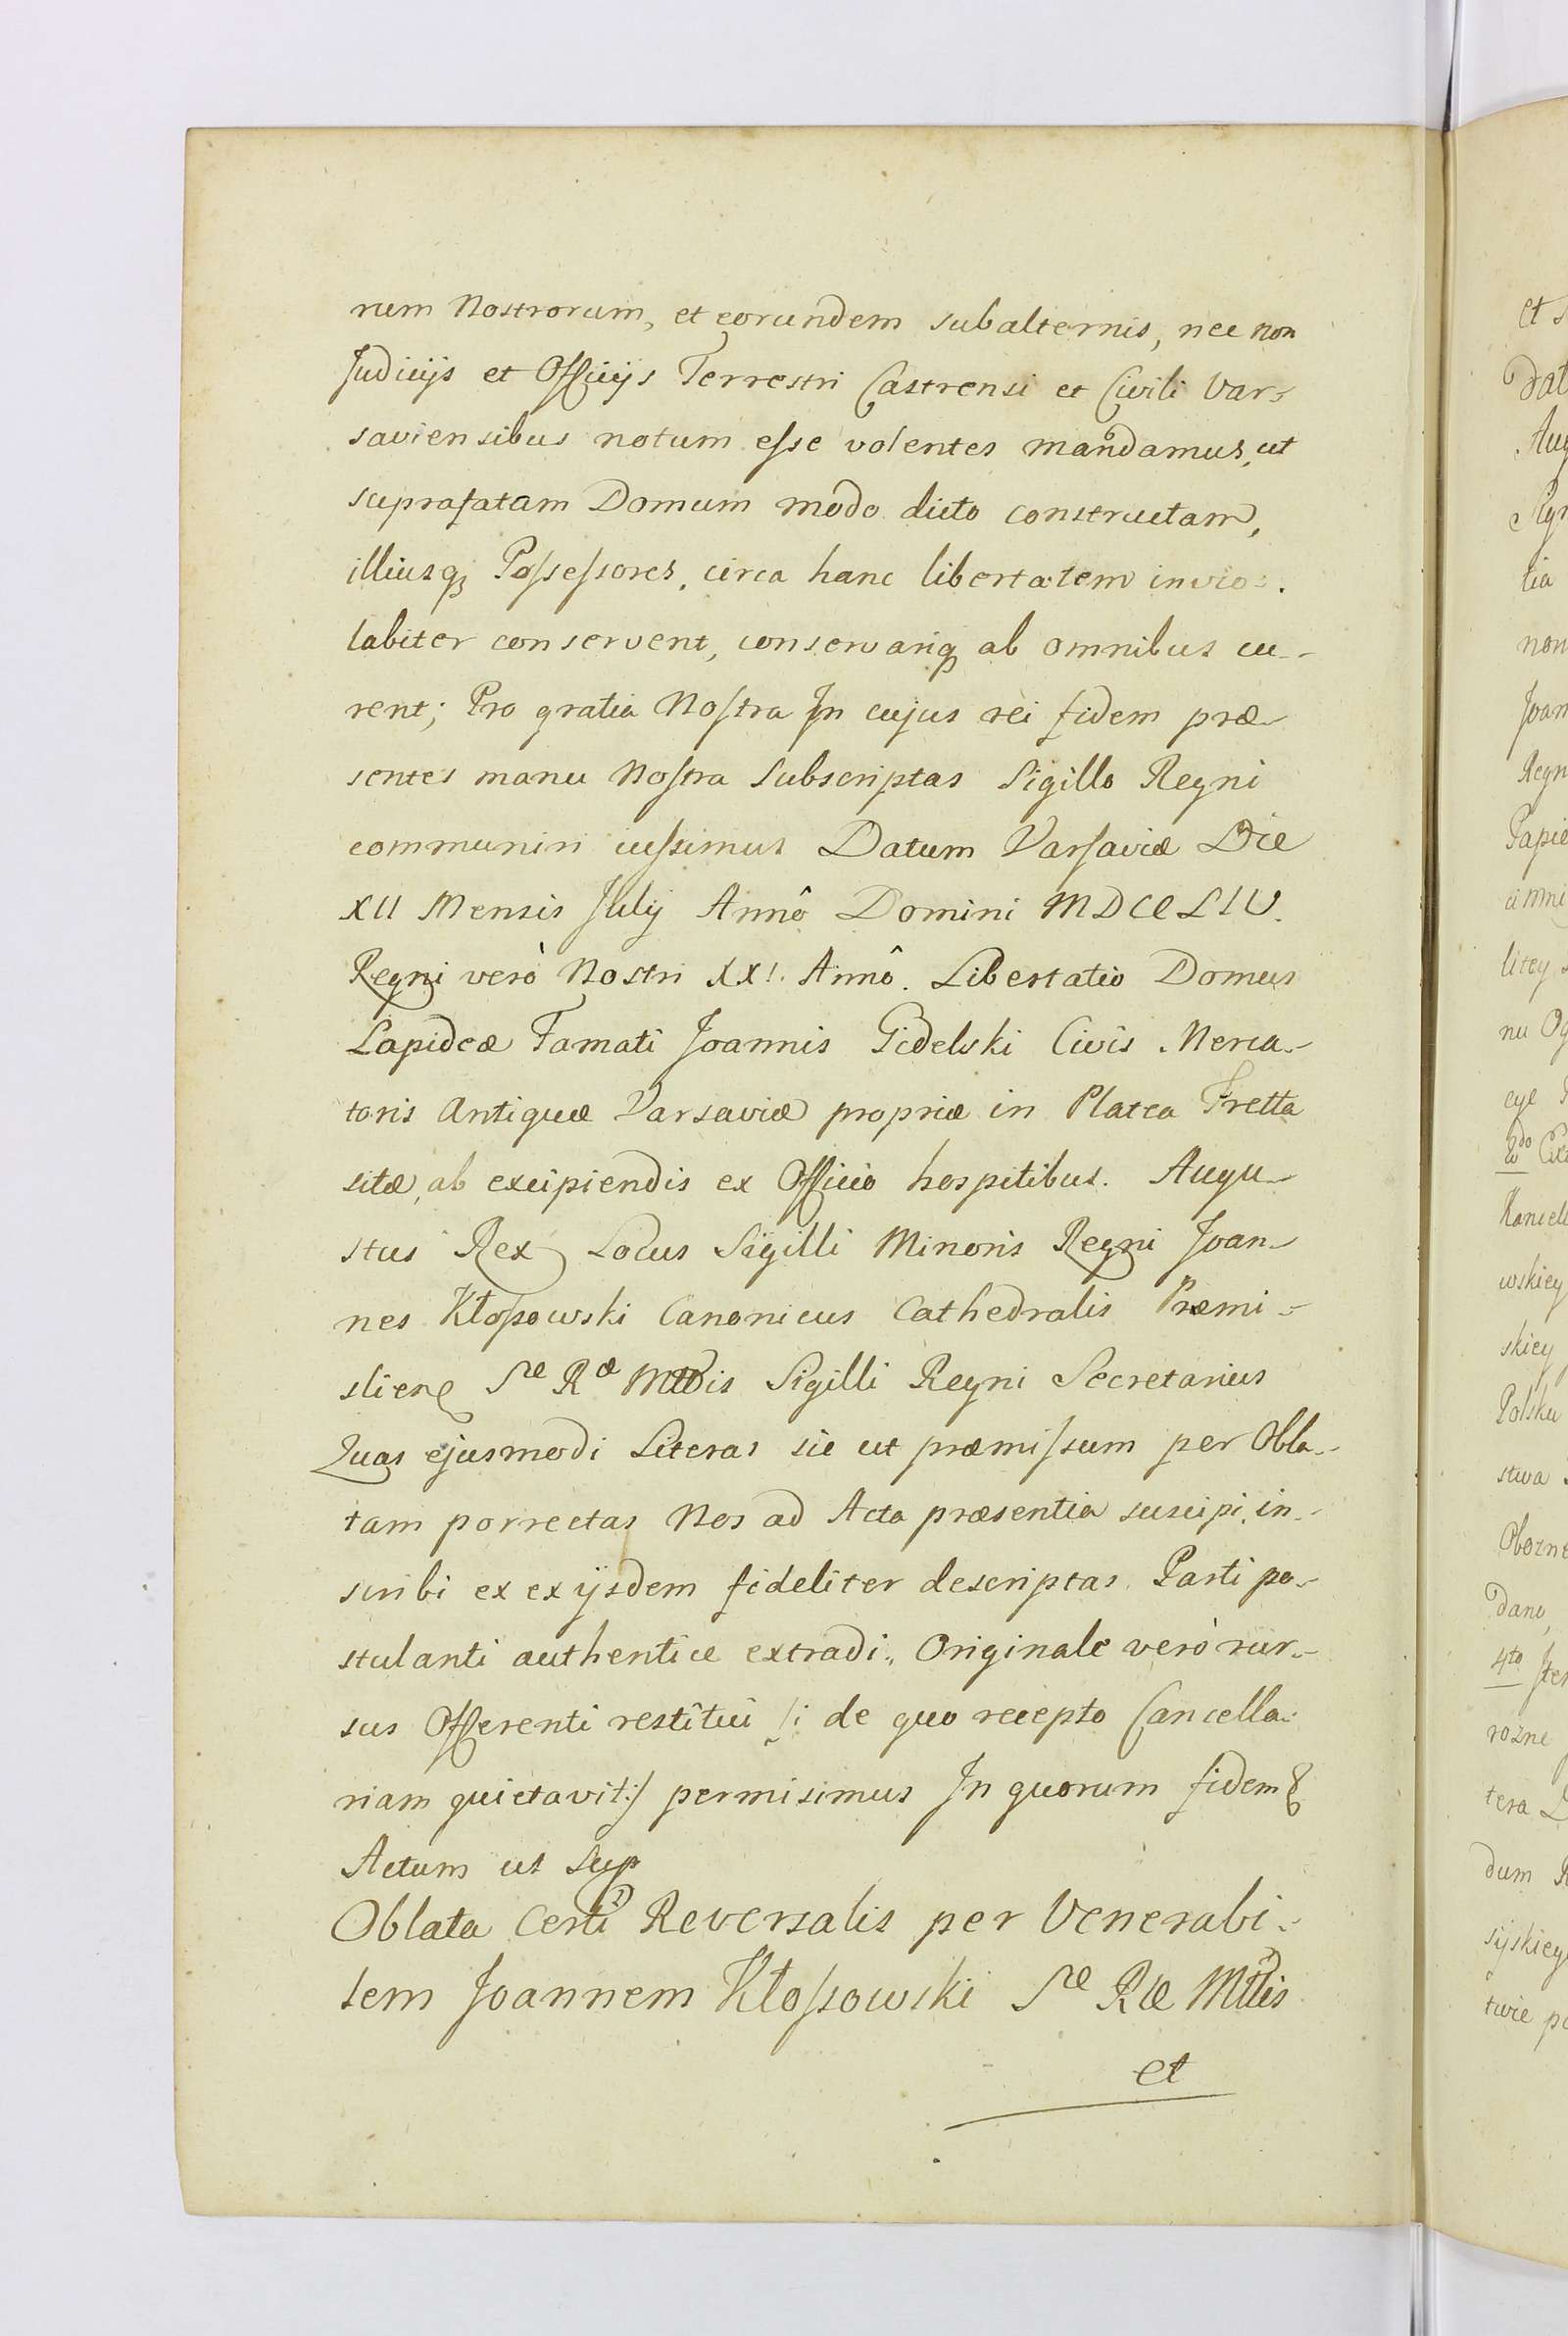 rum Nostrorum, et eorundem subalternis, nec non
Judicijs et Officijs Terrestri Castrensi et Civili Var-
saviensibus notum esse volentes mandamus, ut
suprafatam Domum modo dicto constructam,
illiusq; Possessores, circa hanc libertatem invio-
labiter conservent, conservariq; ab omnibus cu-
rent; Pro gratia Nostra In cujus rei fidem præ-
sentes manu Nostra Subscriptas Sigillo Regni
communiri iussimus Datum Varsaviæ Die
XII Mensis Julij Annô Domini MDCCLIV.
Regni verò Nostri XXI. Annô. Libertatio Domus
Lapideæ Famati Joannis Gidelski Civis Merca-
toris Antiquæ Varsaviæ propriæ in Platea Fretta
sitæ, ab excipiendis ex Officio hospitibus. Augu-
stus Rex Locus Sigilli Minoris Regni Joan-
nes Kłossowski Canonicus Cathedralis Præmi-
slien Sæ Ræ Mttis Sigilli Regni Secretarius
Quas ejusmodi Literas sic ut præmissum per Obla-
tam porrectas Nos ad Acta præsentia suscipi, in-
scribi ex exijsdem fideliter descriptas Parti po-
stulanti authentice extradi, Originale verò rur-
sus Offerenti restitui /: de quo recepto Cancella-
riam quietavit :/ permisimus In quorum fidem &
Actum ut Sup
Oblata Certi Reversalis per Venerabi-
lem Joannem Kłossowski Sæ Ræ Mttis
et
et s
dat
Aug
lia
non
Joan
Regn
Papie
litey
nu Og
cye
Kancell
wskiey
skiey
Polsku
stwa
Obozne
dane,
4to
rozne
tera
dum
sijskiey
twie po